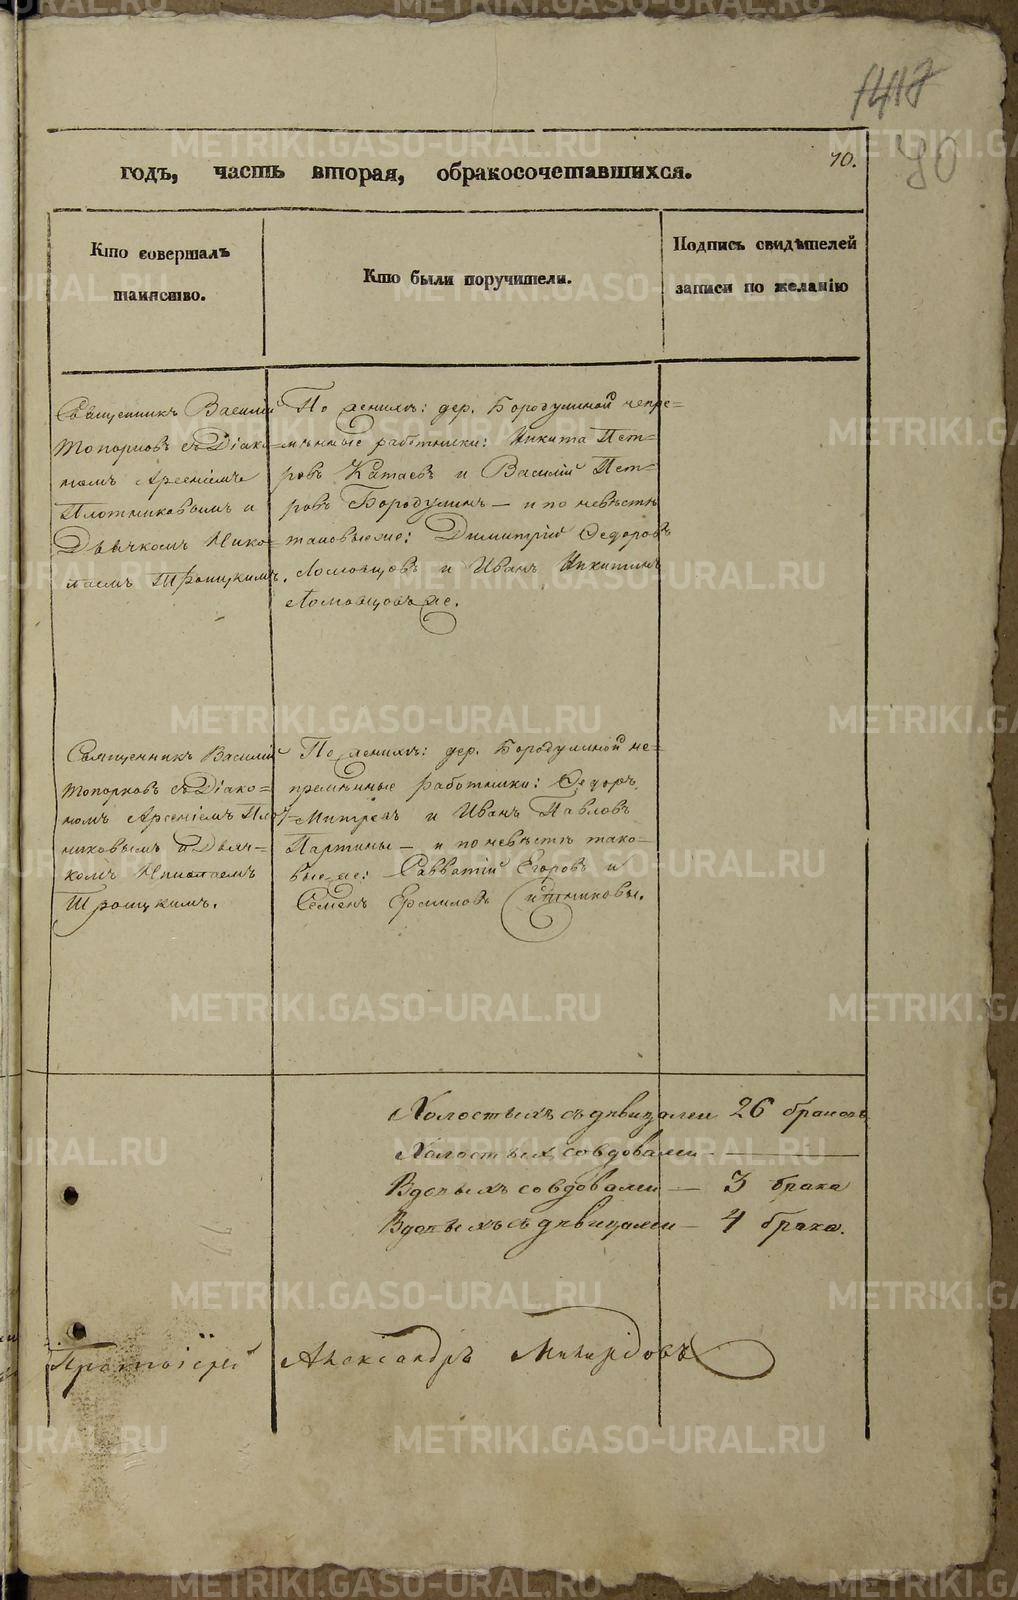 1417
70.
70
годъ, часть вторая, обракосочетавшихся.
Кто совершалъ
таинство.
Кто были поручители.
Подпись свидѣтелей
записи по желанію
Священникъ Василій
Топорковъ съ Діако-
номъ Арсеніемъ
Плотниковымъ и
Дьячкомъ Нико-
лаемъ Троицкимъ.
По женихѣ: дер. Бородулиной непре-
мѣнные работники: Никита Пет-
ровъ Катаевъ и Василій Пет-
ровъ Бородулинъ — и по невѣстѣ
таковые же: Димитрій Ѳедоровъ
Ломовцовъ и Иванъ Никитинъ
Ломовцовъ же.
Священникъ Василій
Топорковъ съ Діако-
номъ Арсеніемъ Плот-
никовымъ и Дьяч-
комъ Николаемъ
Троицкимъ.
По женихѣ: дер. Бородулиной не-
премѣнные работники: Ѳедоръ
и Иванъ Павловъ
Партины — и по невѣстѣ тако-
вые же: Савватій Егоровъ и
Семенъ Ермиловъ Ситниковы.
Холостыхъ съ дѣвицами 26 браковъ
Холостыхъ со вдовами — —
Вдовыхъ со вдовами — 3 брака
Вдовыхъ съ дѣвицами — 4 брака.
Протоіерей Александръ
METRIKI.GASO-URAL.RU